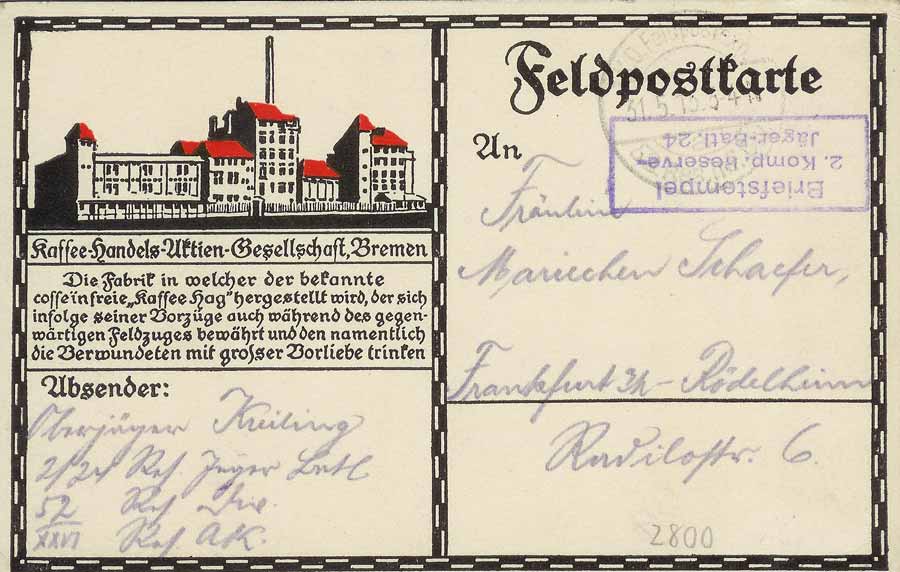 Kaffee-Handels-Aktien-Gesellschaft, Bremen
Die Fabrik in welcher der bekannte
coffeinfreie „Kaffee Hag" hergestellt wird, der sich
infolge seiner Vorzüge auch während des gegen-
wärtigen Feldzuges bewährt und den namentlich
die Verwundeten mit grosser Vorliebe trinken
Absender:
Oberjäger Kreiling
2/24 Res. Jäger Batl
52 Res Div.
XXVI Res. AK.
Feldpostkarte
An
Fräulein
Mariechen Schaefer,
Frankfurt a/M - Rödelheim
Radilostr. 6.
2800
Briefstempel
2. Komp. Reserve-
Jäger-Batl. 24
31.5.15.3-4N